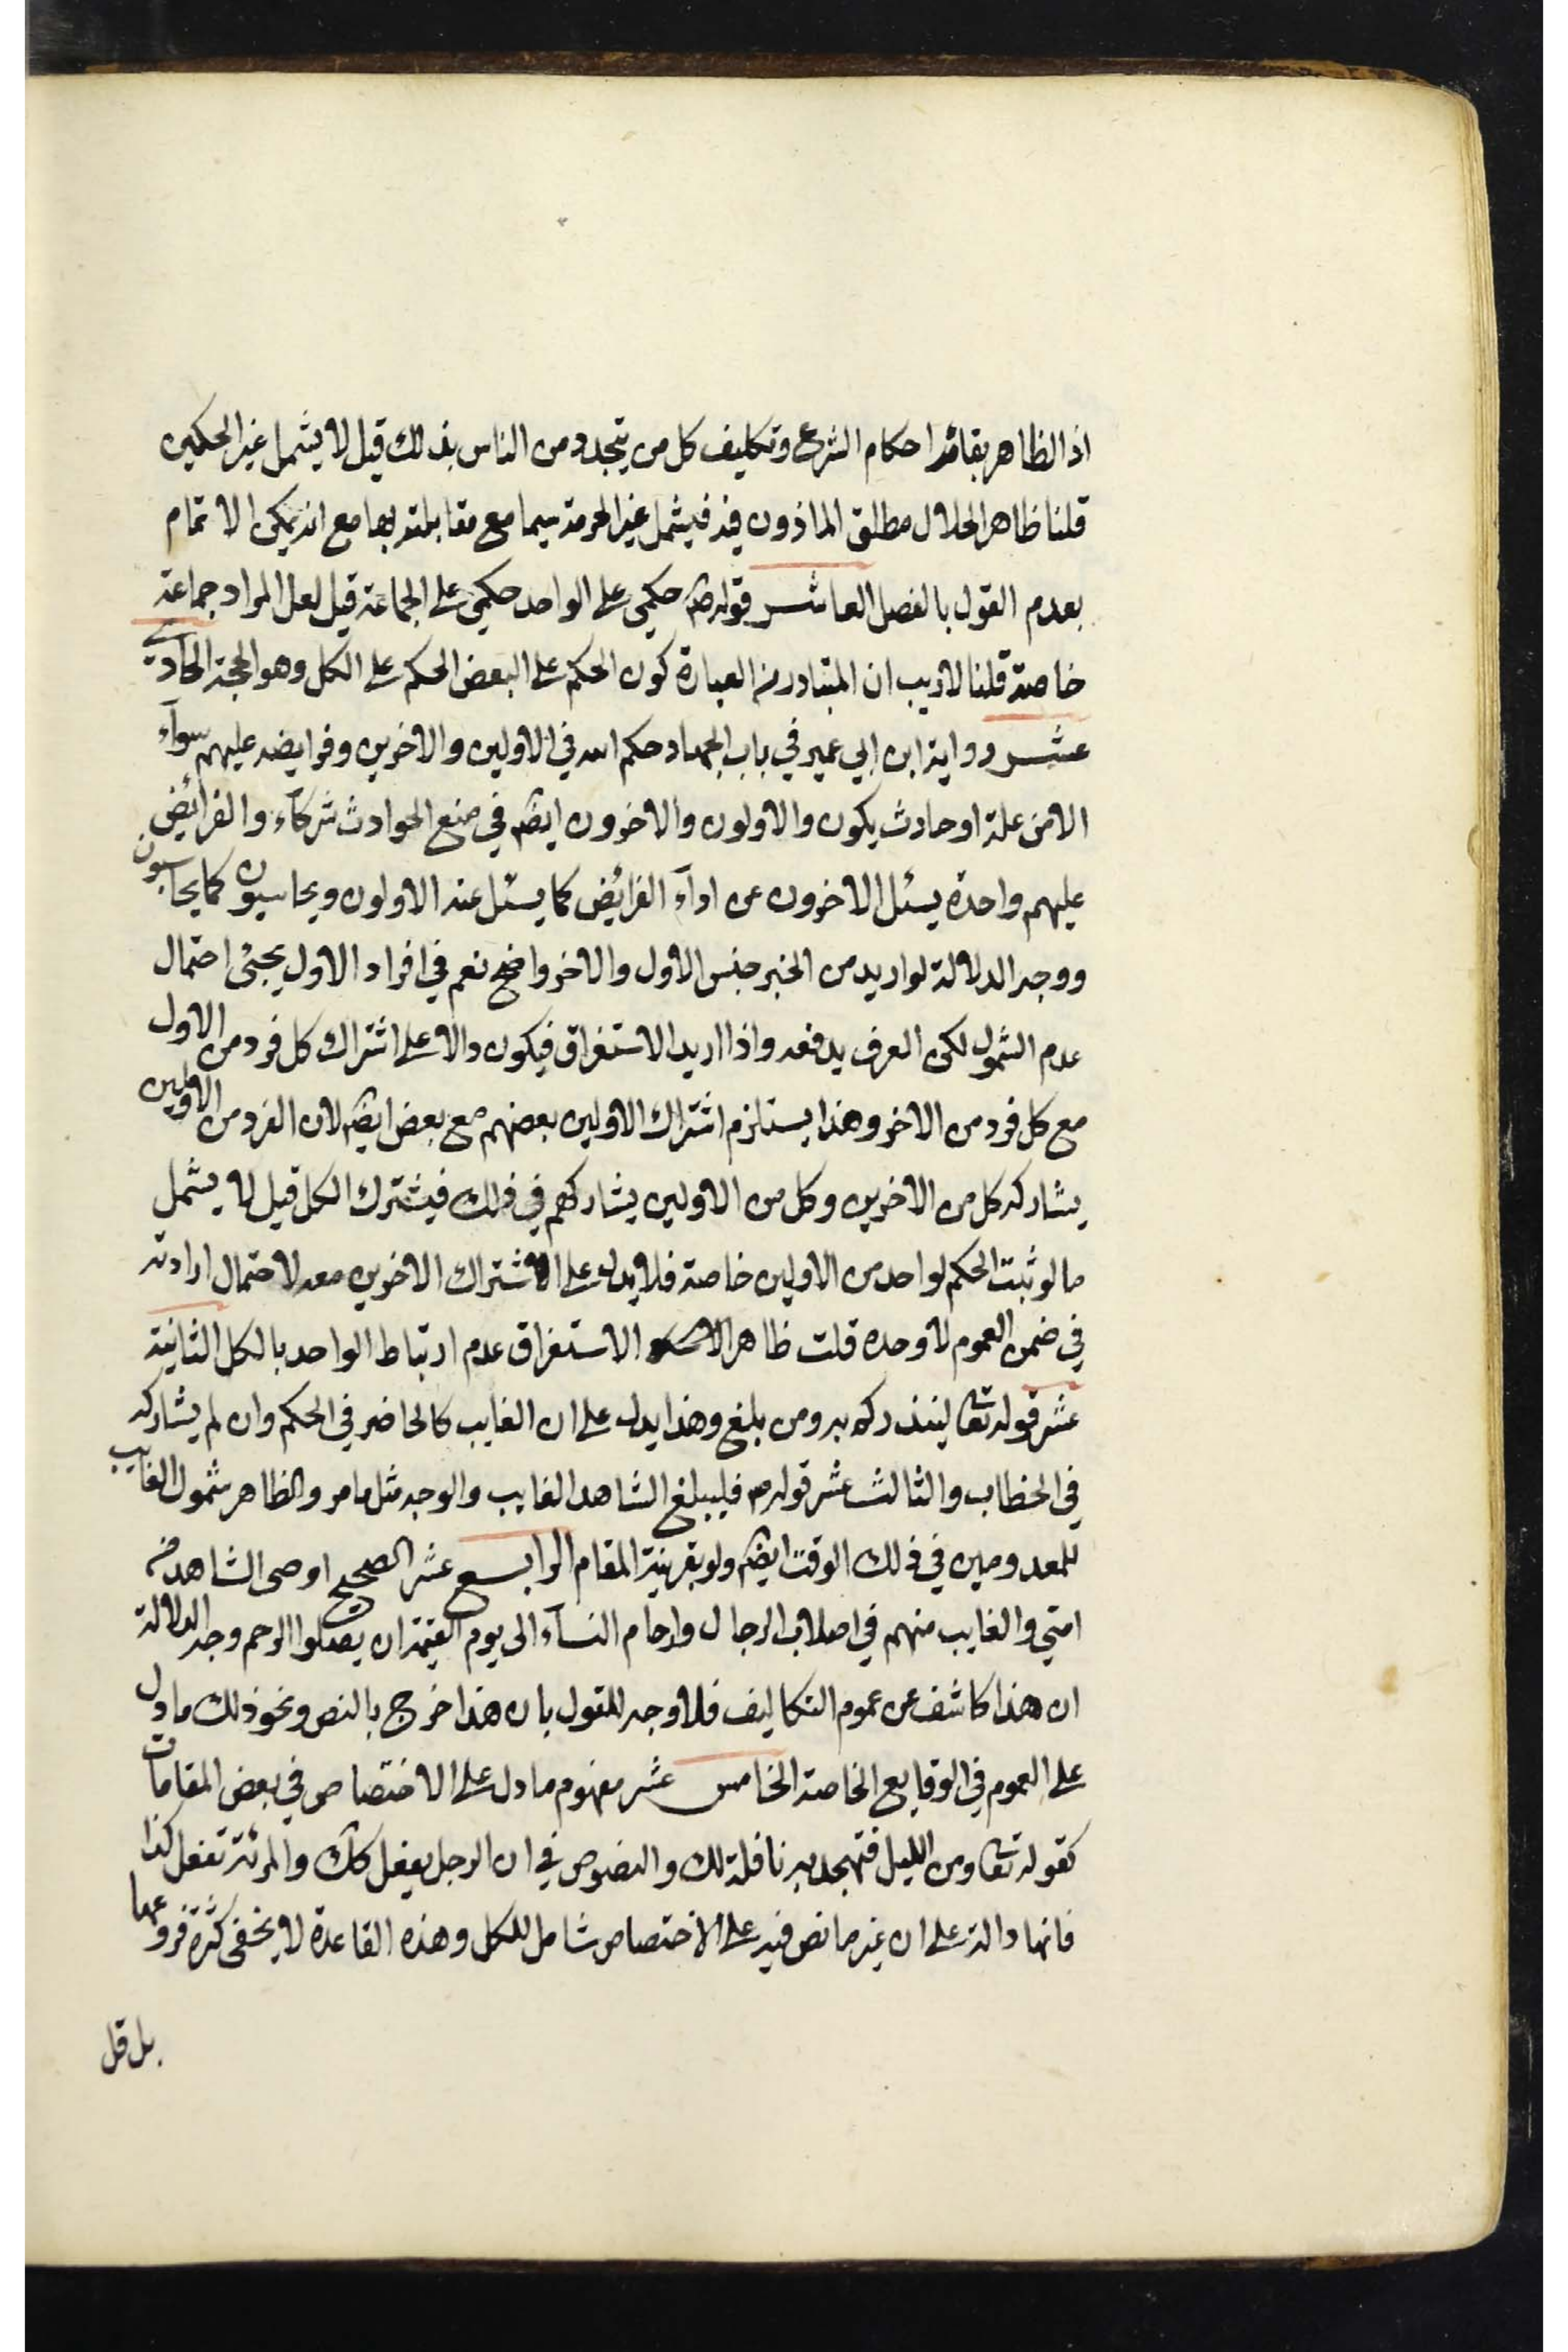 اذ الظاهر بقائه احكام الشرع وتكليف كل من يتجدد من الناس بذلك قيل لا يشمل غير الحكمين
قلنا ظاهر الحلال مطلق الماذون فيه فيشمل غير الحرمة سيما مع مقابلته بها مع انه يمكن الاتمام
بعدم القول بالفصل العاشر قوله ص حكمي على الواحد حكمي على الجماعة قيل لعل المراد جماعة
خاصة قلنا لا ريب ان المتبادر من العبارة كون الحكم على البعض الحكم على الكل وهو الحجة الحادية
عشر رواية ابن ابي عمير في باب الجهاد حكم الله في الاولين والاخرين وفرايضه عليهم سوآء
الا من علة او حادث يكون والاولون والاخرون ايضا في منع الحوادث شركآء والفرائض
عليهم واحدة يسئل الاخرون عن ادآء الفرائض كما يسئل عنه الاولون ويحاسبون كما يحاسبون
ووجه الدلالة لو اريد من الخبر جنس الاول والاخر واضح نعم في افراد الاول يجئ احتمال
عدم الشمول لكن العرف يدفعه واذا اريد الاستغراق فيكون دالا على اشتراك كل فرد من الاول
مع كل فرد من الاخر وهذا يستلزم اشتراك الاولين بعضهم مع بعض ايضا لان الفرد من الاولين
يشاركه كل من الاخرين وكل من الاولين يشاركهم في ذلك فيشترك الكل قيل لا يشمل
ما لو ثبت الحكم لواحد من الاولين خاصة فلا يدل على اشتراك الاخرين معه لاحتمال ارادته
في ضمن العموم لا وحده قلت ظاهر الاستغراق عدم ارتباط الواحد بالكل الثانية
عشر قوله تعا لينذركم به ومن بلغ وهذا يدل على ان الغايب كالحاضر في الحكم وان لم يشاركه
في الخطاب والثالث عشر قوله ص فليبلغ الشاهد الغايب والوجه مثل ما مر والظاهر شمول الغايب
للمعدومين في ذلك الوقت ايضا ولو بقرينة المقام الرابع عشر الصحيح اوصى الشاهد من
امتي والغايب منهم في اصلاب الرجال وارحام النسآء الى يوم القيمة ان يصلوا الرحم وجه الدلالة
ان هذا كاشف عن عموم التكاليف فلا وجه للقول بان هذا خرج بالنص ونحو ذلك ما دل
على العموم في الوقايع الخاصة الخامس عشر مفهوم ما دل على الاختصاص في بعض المقامات
كقوله تعا ومن الليل فتهجد به نافلة لك والنصوص في ان الرجل يفعل كك والمرئة تفعل كذا
فانها دالة على ان غير ما نص فيه على الاختصاص شامل للكل وهذه القاعدة لا يخفى كثرة فروعها
بل قل